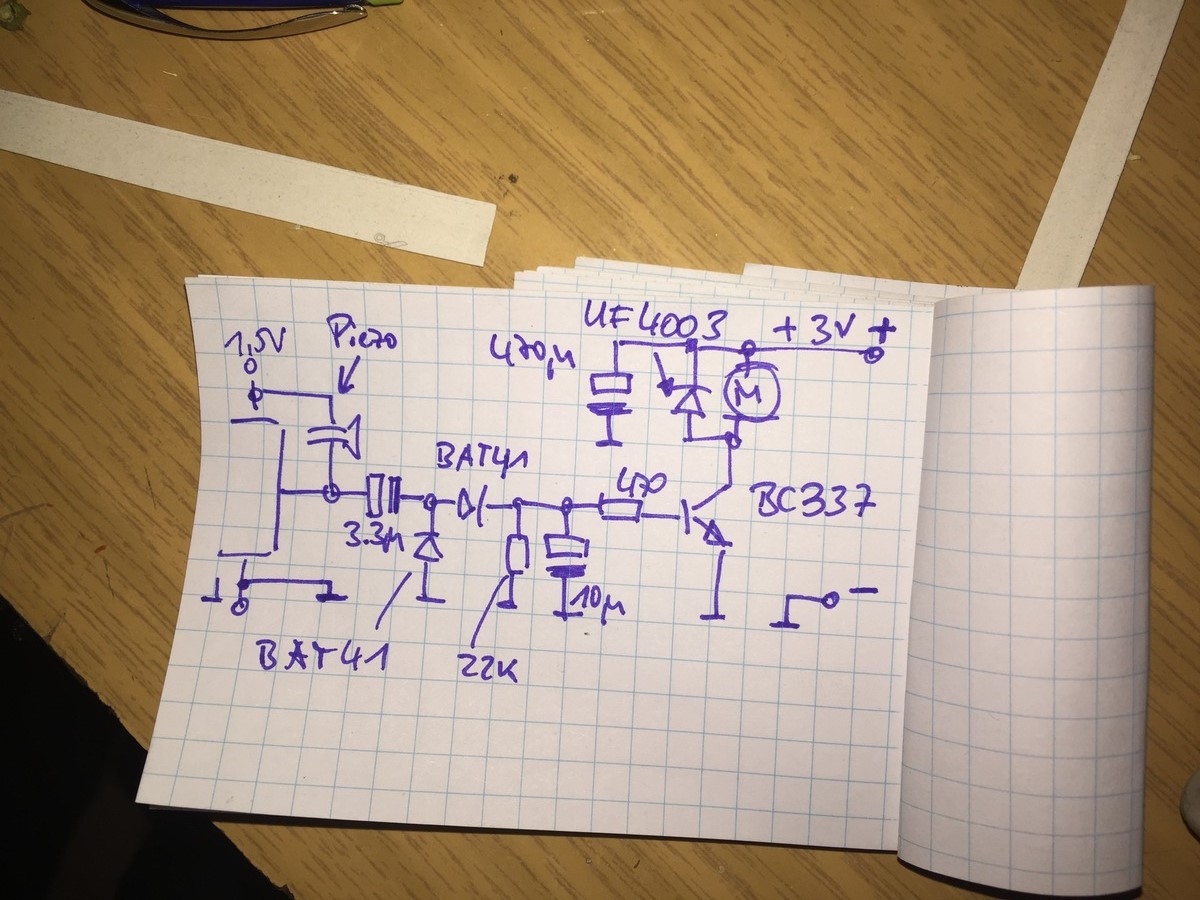 1,5V
Piezo
UF4003
+3V +
470µ
M
BAT41
470
BC337
3.3µ
10µ
-
BAT41
22K